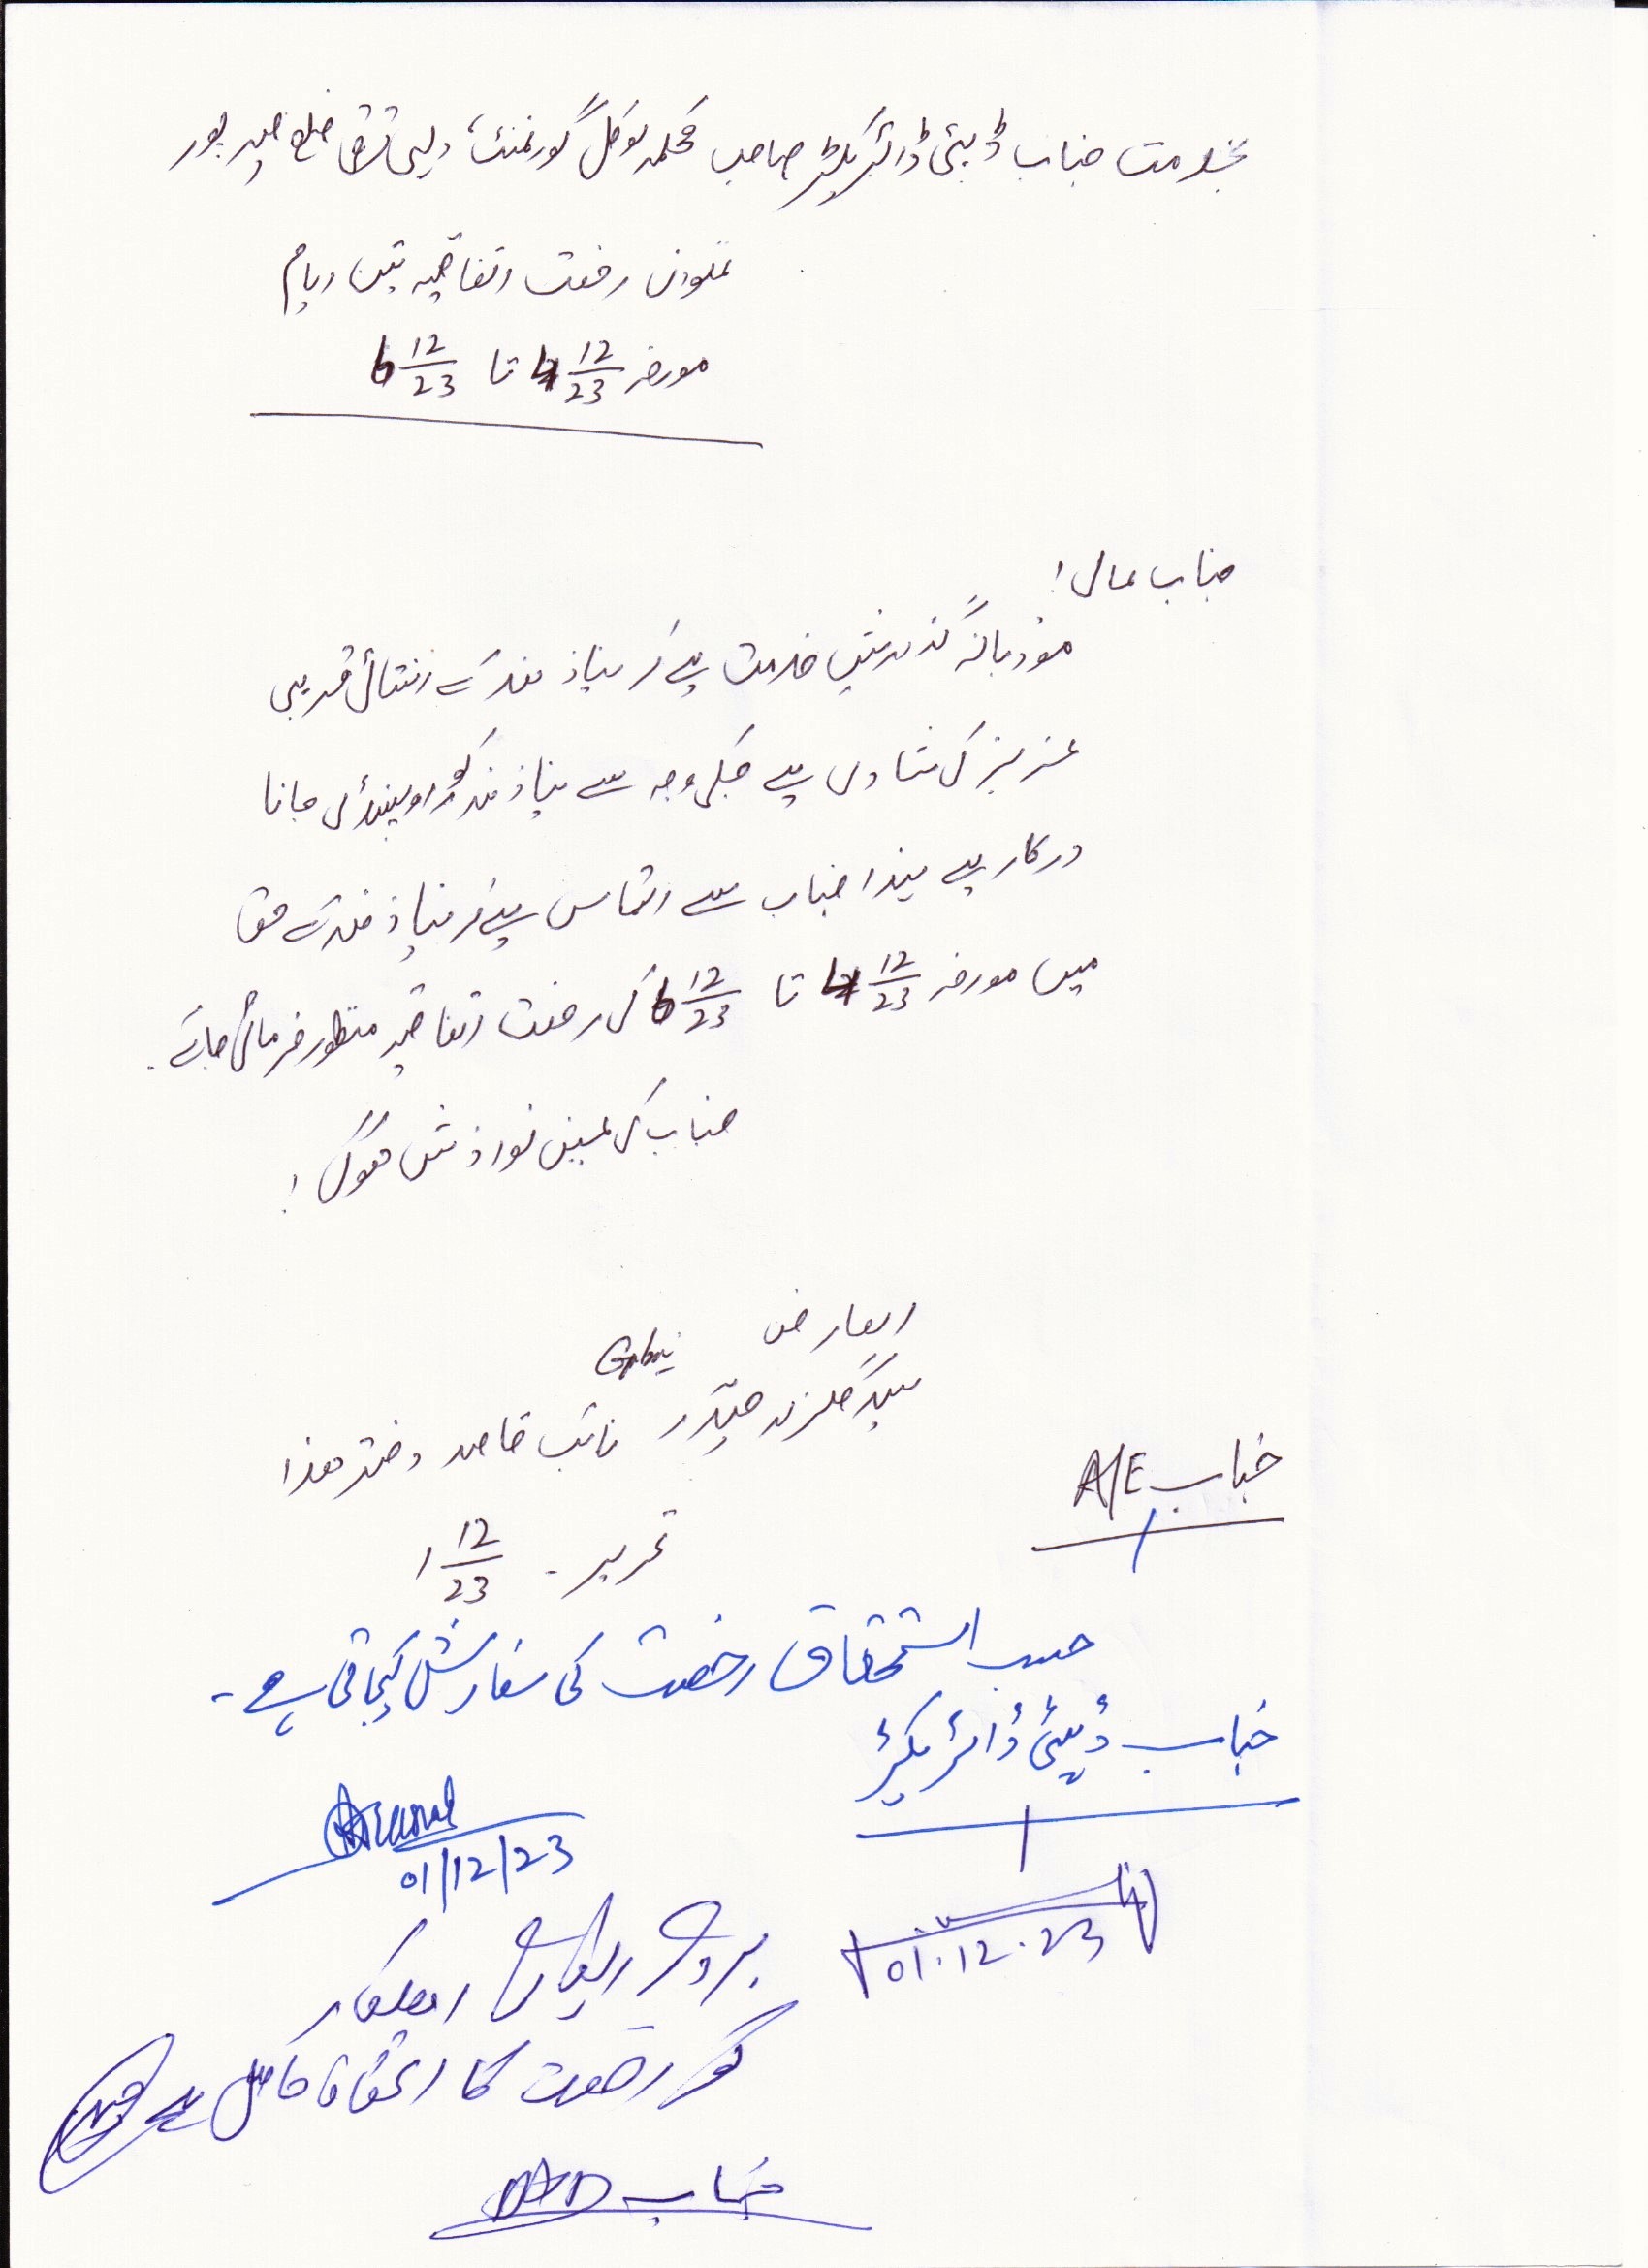 بخدمت جناب ڈپٹی ڈائریکٹر صاحب محکمہ لوکل گورنمنٹ، دیہی ترقی ضلع میرپور
عنوان رخصت اتفاقیہ تین ایام
مورخہ 4 12/23 تا 6 12/23
جناب عالی!
مؤدبانہ گذارش خدمت ہے کہ نیاز مند کے انتہائی قریبی
عزیز کی شادی ہے جسکی وجہ سے نیاز مند کو راولپنڈی جانا
درکار ہے لہذا جناب سے التماس ہے کہ نیاز مند کے حق
میں مورخہ 4 12/23 تا 6 12/23 کی رخصت اتفاقیہ منظور فرمائی جائے۔
جناب کی عین نوازش ہوگی!
العارض
سید حیدر نائب قاصد دفتر ھذا
تحریر۔ 1 12/23
جناب A/E
حسب استحقاق رخصت کی سفارش کیجاتی ہے۔
جناب ڈپٹی ڈائریکٹر
01/12/23
01.12.23
بروئے ریکارڈ اہلکار
کو رخصت کا استحقاق حاصل ہے
جناب